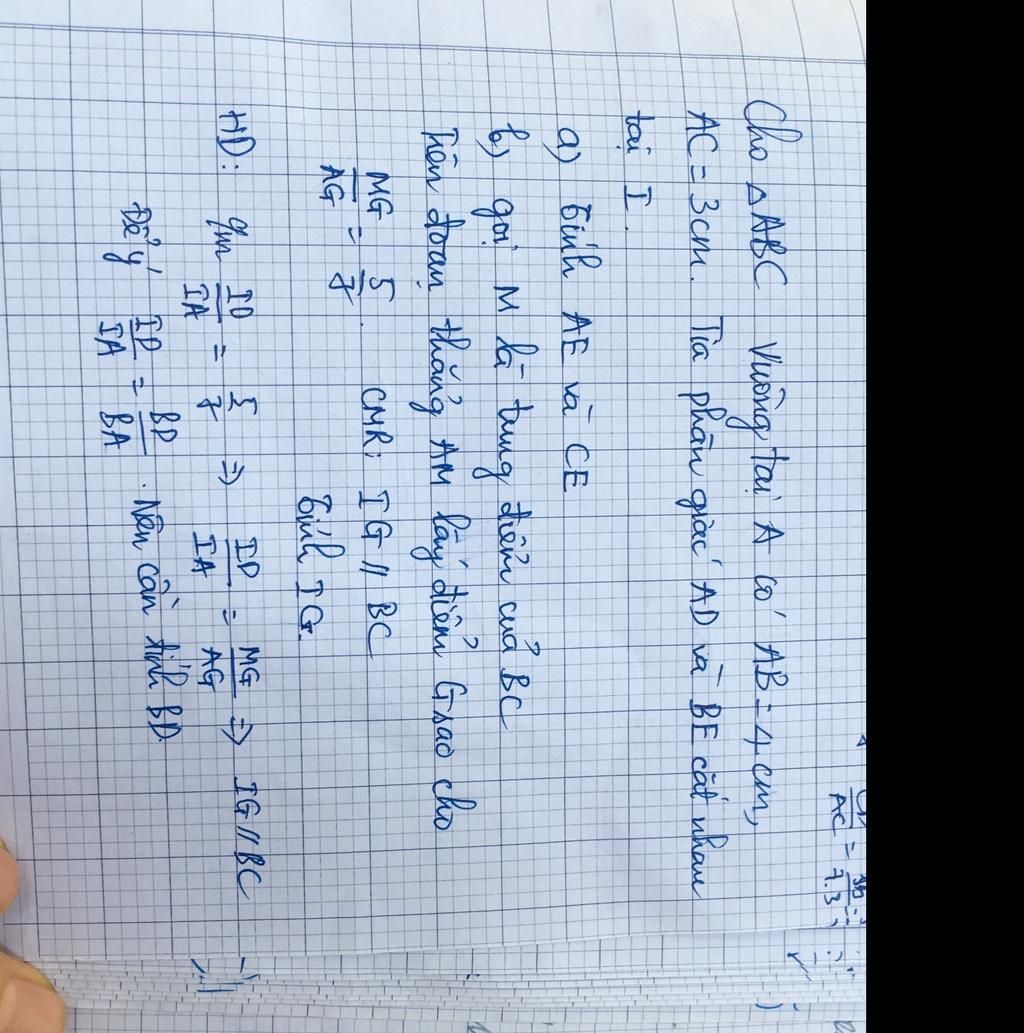 Cho △ABC vuông tại A có AB = 4 cm,
AC = 3cm. Tia phân giác AD và BE cắt nhau
tại I.
a) Tính AE và CE
b) gọi M là trung điểm của BC
Trên đoạn thẳng AM lấy điểm G sao cho
MG/AG = 5/7. CMR: IG // BC
Tính IG.
HD: ID/IA = 5/7 ⇒ ID/IA = MG/AG ⇒ IG // BC
Để ý ID/IA = BD/BA. Nên cần tính BD.